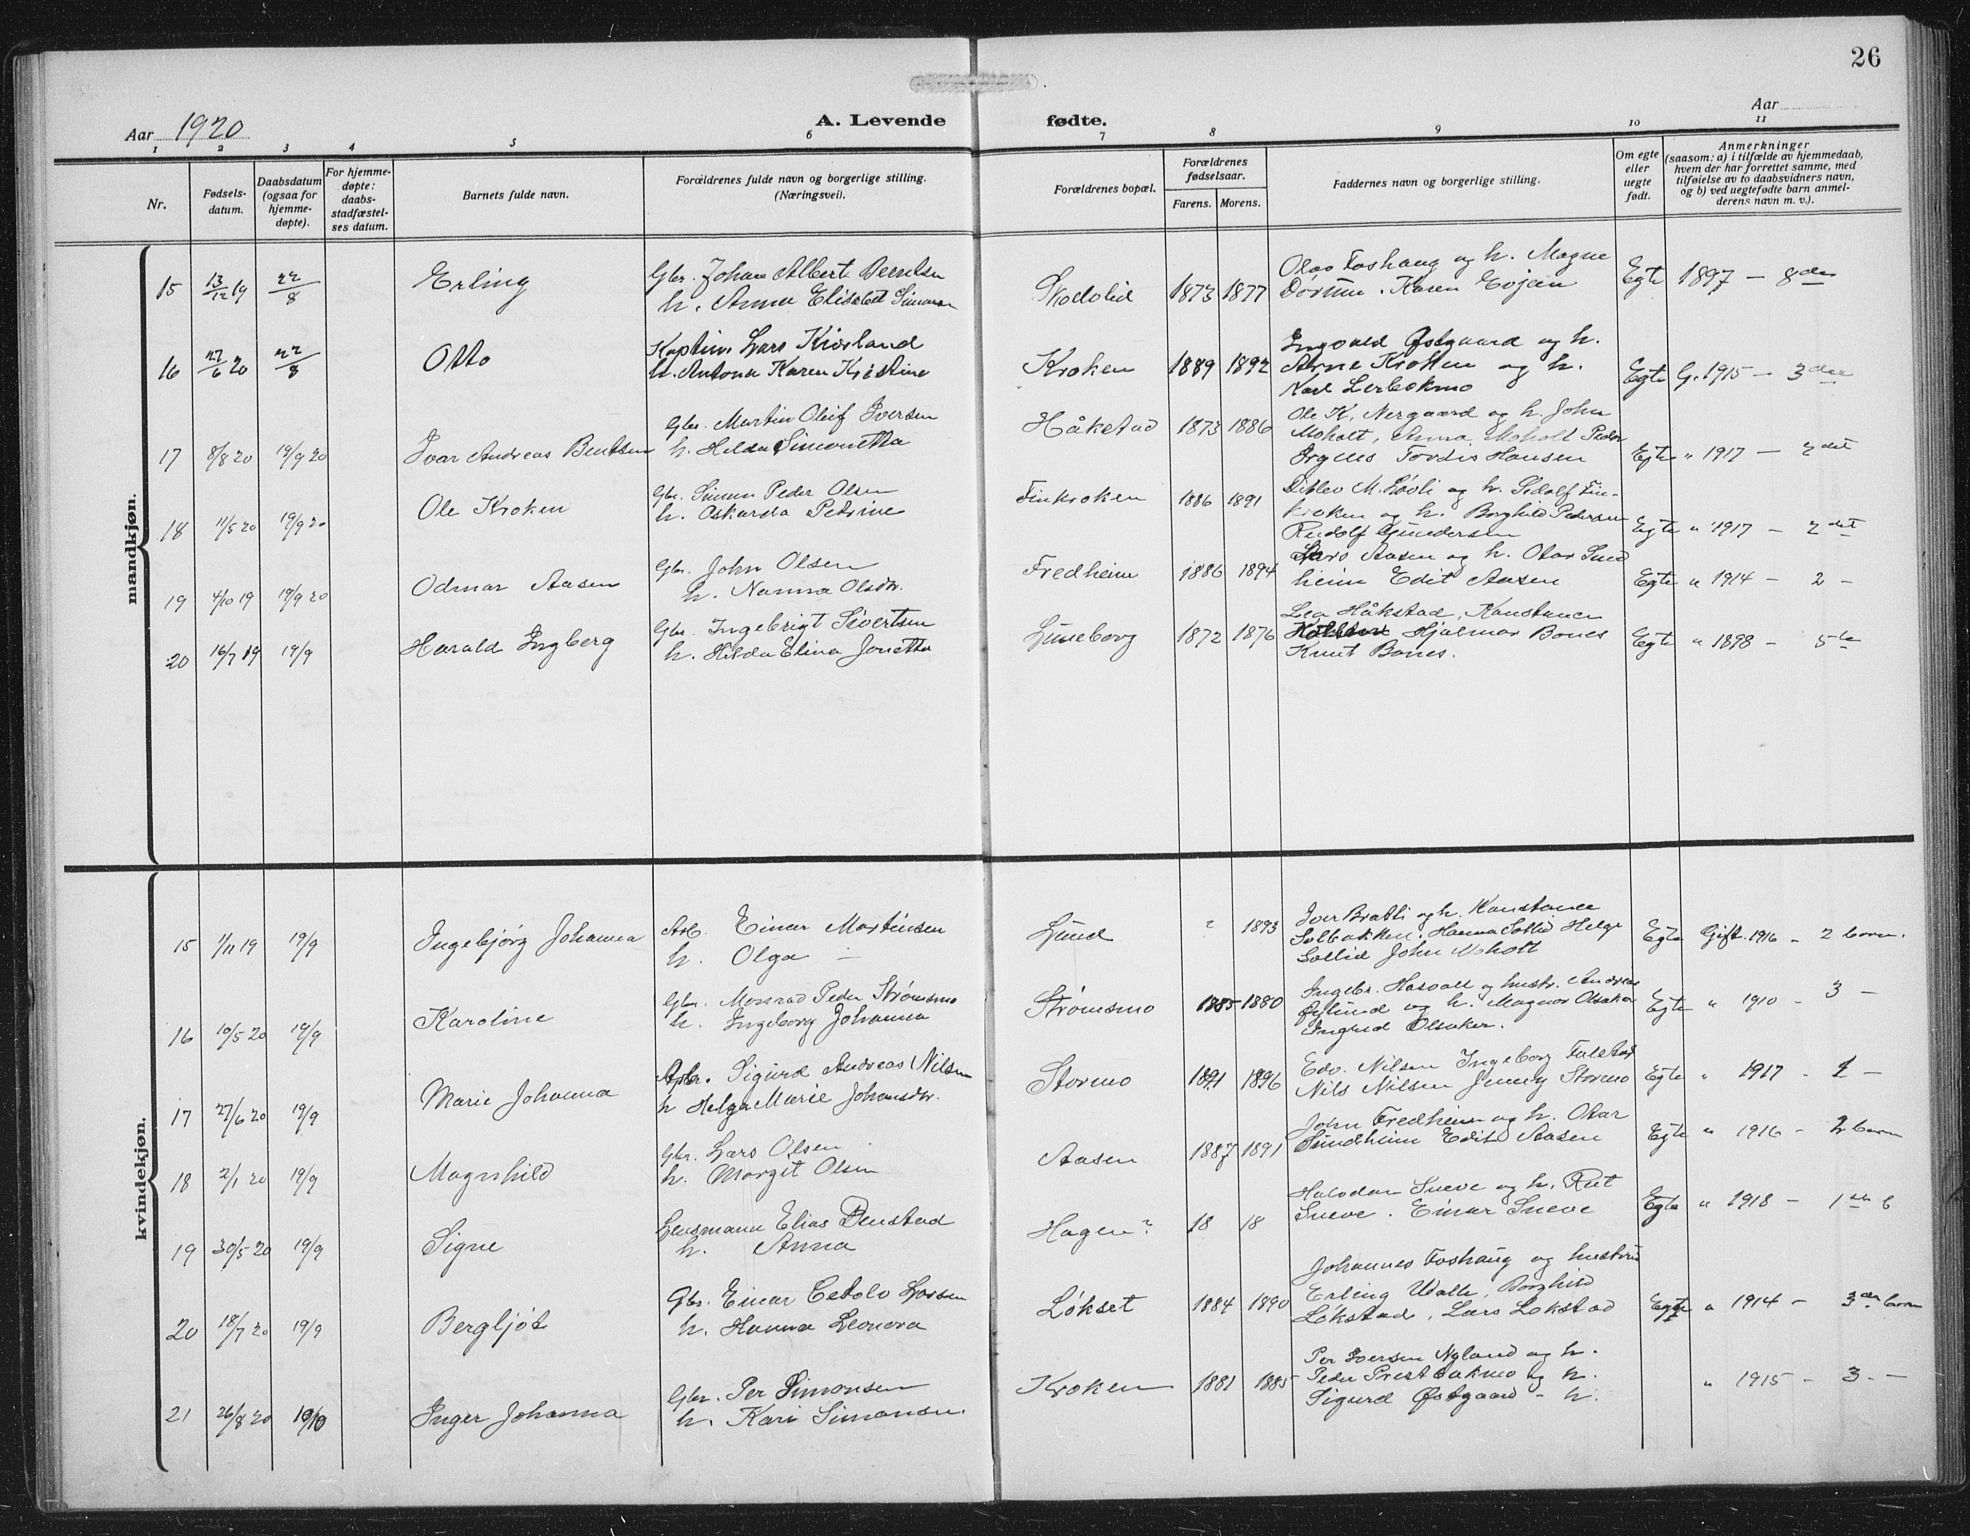 26
Aar 1920
A. Levende fødte.
Aar
1 2 3 4 5 6 7 8 9 10 11
Nr.
Fødsels-
datum.
Daabsdatum
(ogsaa for
hjemme-
døpte).
For hjemme-
døpte:
daabs-
stadfæstel-
ses datum.
Barnets fulde navn.
Forældrenes fulde navn og borgerlige stilling.
(Næringsvei).
Forældrenes bopæl.
Forældrenes
fødselsaar.
Farens. Morens.
Faddernes navn og borgerlige stilling.
Om egte
eller
uegte
født.
Anmerkninger
(saasom: a) i tilfælde av hjemmedaab,
hvem der har forrettet samme, med
tilføielse av to daabsvidners navn,
og b) ved uegtefødte barn anmel-
derens navn m. v.).
mandkjøn.
15 13/12 19 22/8 Erling
Gbr. Johan Albert Berntsen
h. Anna Elisabet Simonsen
1873 1877
Olav Foshaug og h. Magne
Karen
Egte 1897 — 8de
16 27/6 20 22/8 Otto
Lars
h. Antona Karen Kristine
Kroken 1889 1892
Ingvald Østgaard og h.
Arne Kroken og h.
Karl
Egte G. 1915 — 3die
17 8/8 20 19/9 20 Ivar Andreas Bentsen
Gbr. Martin Oluf Iversen
h. Hilda Simonetta
Håkstad 1873 1886
Ole K. Nergaard og h. John
Moholt, Anna Moholt Peder
Tordis Hansen
Egte " 1917 — 2det
18 11/5 20 19/9 20 Ole Kroken
Gbr. Simon Peder Olsen
h. Oskarda Petrine
Finkroken 1886 1891
Ditlev M. Løvli og h. Sidolf Fin-
kroken og h. Borghild Pedersen
Rudolf Gundersen
Egte " 1917 — 2det
19 4/10 19 19/9 20 Odmar Aasen
Gbr. John Olsen
h. Nanna Olsdtr.
Fredheim 1886 1894
Lars Aasen og h. Otar Sund
heim Edit Aasen
Egte " 1914 — 2 —
20 16/7 19 19/9 Harald Ingberg
Gbr. Ingebrigt Sivertsen
h. Hilda Elina Jonetta
Luneborg 1872 1876
Lea Håkstad, Konstance
Hjalmar Bones
Knut Bones.
Egte " 1898 — 5te
kvindekjøn.
15 1/11 19 19/9 Ingebjørg Johanna
Arb. Einar Martinsen
h. Olga —
Lund ? 1893
Iver Bratli og h. Konstance
Solbakken. Hanna Sollid Helge
Sollid John Moholt
Egte Gift. 1916 — 2 barn.
16 10/5 20 19/9 Karoline
Gbr. Monrad Peder Strømsmo
h. Ingeborg Johanna
Strømsmo 1885 1880
Ingebr. Hasvoll og hustr. Andreas
Øylund og h. Magnor Olsaker
Ingrid Olsaker.
Egte " 1910 — 3 —
17 27/6 20 19/9 Marie Johanna
Sigurd Andreas Nilsen
h Helga Marie Johansdtr.
Stormo 1891 1896
Edv. Nilsen Ingeborg Falstad
Nils Nilsen Jenny Stormo
Egte " 1917 — 1 —
18 2/1 20 19/9 Magnhild
Gbr. Lars Olsen
h. Margit Olsen
Aasen 1887 1891
John Fredheim og h. Otar
Sundheim Edit Aasen
Egte " 1916 — 2 barn
19 30/5 20 19/9 Signe
Lensmann Elias Denstad
h. Anna
Hagen? 18 18
Halvdan Sneve og h. Rut
Sneve. Einar Sneve
Egte " 1918 — 1ste b
20 18/7 20 19/9 Bergljot
Gbr. Einar Larsen
h. Hanna Leonora
Løkset 1884 1890
Johannes Foshaug og hustru
Erling Walle, Borghild
Løkstad, Lars Løkstad
Egte " 1914 — 3die barn
21 26/8 20 10/10 Inger Johanna
Gbr. Per Simonsen
h. Kari Simonsen.
Kroken 1881 1885
Per Iversen Nyland og h.
Peder Prestbakmo og h.
Sigurd Østgaard — h.
" 1915 — 3 —